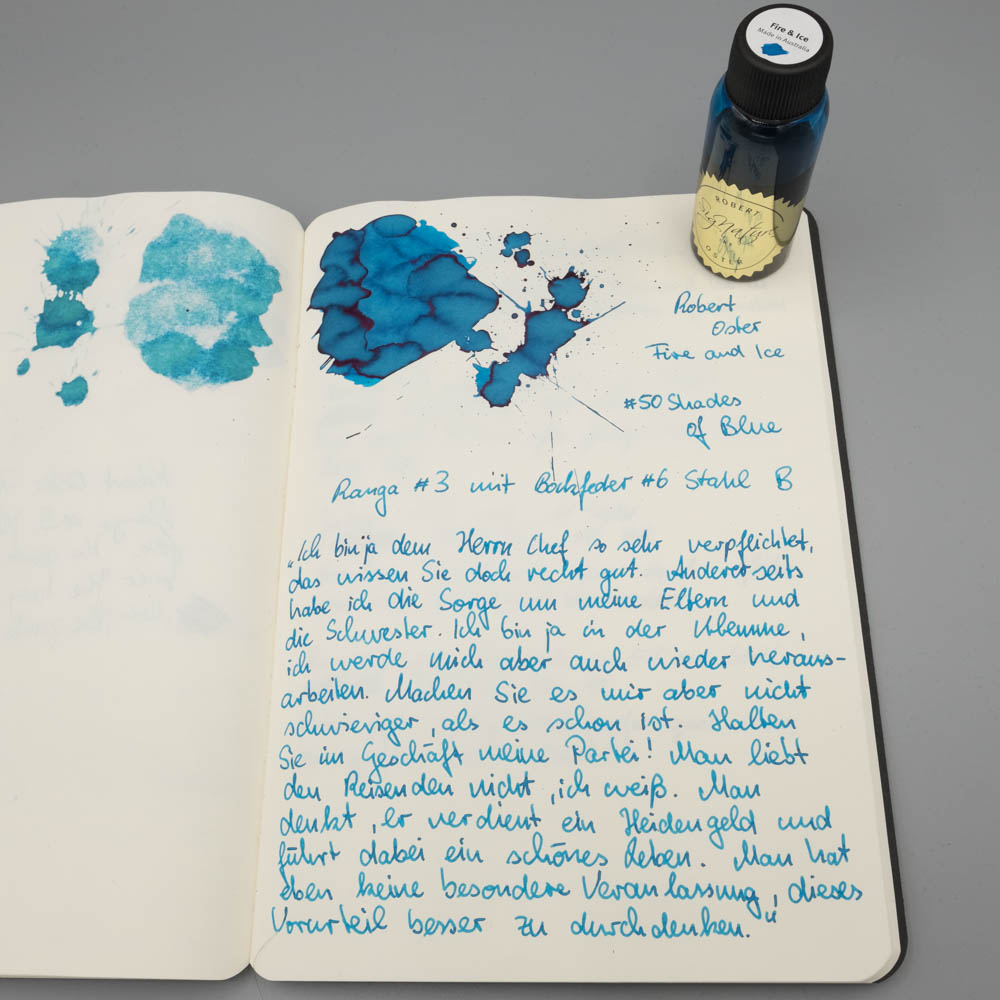 Fire & Ice
Made in Australia
ROBERT
Signature
OSTER
Robert
Oster
Fire and Ice
#50 Shades
of Blue
Ranga #3 mit Bockfeder #6 Stahl B
„Ich bin ja dem Herrn Chef so sehr verpflichtet,
das wissen Sie doch recht gut. Andererseits
habe ich die Sorge um meine Eltern und
die Schwester. Ich bin ja in der Klemme,
ich werde mich aber auch wieder heraus-
arbeiten. Machen Sie es mir aber nicht
schwieriger, als es schon ist. Halten
Sie im Geschäft meine Partei! Man liebt
den Reisenden nicht, ich weiß. Man
denkt, er verdient ein Heidengeld und
führt dabei ein schönes Leben. Man hat
eben keine besondere Veranlassung, dieses
Vorurteil besser zu durchdenken.“